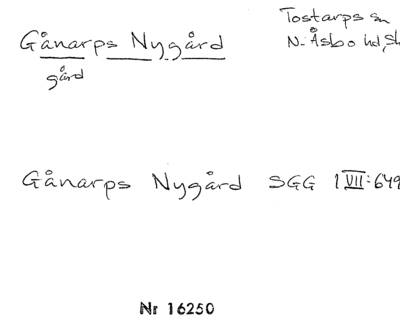 Tostarps sn
Gånarps Nygård
N. Åsbo hd, Sk
gård
Gånarps Nygård SGG 1 VII: 649
Nr 16250